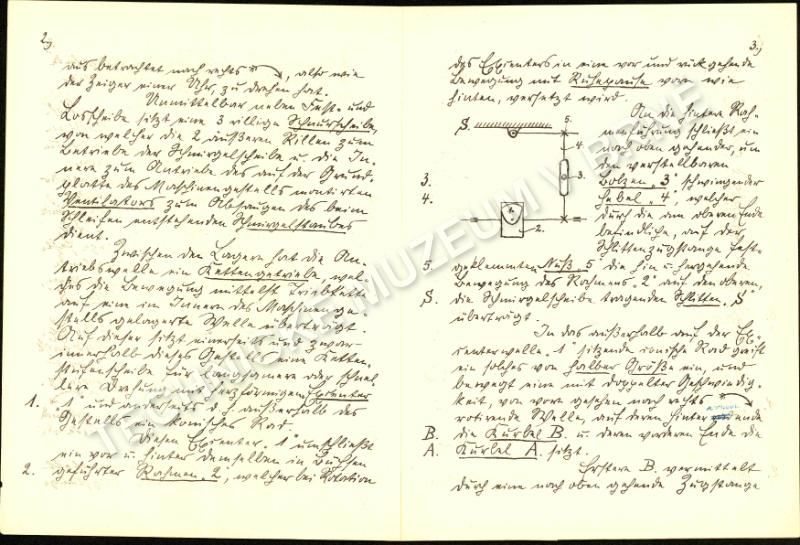 2.)
aus betrachtet nach rechts, also wie
der Zeiger einer Uhr, zu drehen hat.
Unmittelbar neben Fest- und
Losscheibe sitzt eine 3 rillige Schnurscheibe,
von welcher die 2 äußeren Rillen zum
Betriebe der Schmirgelscheibe u. die In-
nere zum Antriebe des auf der Grund-
platte des Maschinengestells montierten
Ventilators zum Absaugen des beim
Schleifen entstehenden Schmirgelstaubes
dient.
Zwischen den Lagern hat die An-
triebswelle ein Kettengetriebe, wel-
ches die Bewegung mittelst Triebkette
auf eine im Innern des Maschinenge-
stells gelagerte Welle überträgt.
Auf dieser sitzt einerseits und zwar
innerhalb dieses Gestells eine Ketten-
stufenscheibe für langsamere oder schnel-
lere Drehung mit herzförmigem Exzenter
1. „1“ und anderseits d. h. außerhalb des
Gestells ein konisches Rad.
Diesen Exzenter „1“ umschließt
ein vor u. hinter demselben in Büchsen
2. geführter Rahmen „2“, welcher bei Rotation
3.)
des Exzenters in eine vor und rückgehende
Bewegung mit Ruhepause vorn wie
hinten, versetzt wird.
An die hintere Rah-
menführung schließt ein
nach oben gehender, um
den verstellbaren
3. Bolzen „3“ schwingender
4. Hebel „4“, welcher
durch die am oberen Ende
befindliche, auf der
Schlittenzugstange fest-
5. geklemmten Nuß „5“ die hin u. hergehende
Bewegung des Rahmens „2“ auf den oberen,
S. die Schmirgelscheibe tragenden Schlitten „S“
überträgt.
In das außerhalb auf der Ex-
centerwelle „1“ sitzende conische Rad greift
ein solches von halber Größe ein, und
bewegt eine mit doppelter Geschwindig-
keit, von vorn gesehen nach rechts
rotirende Welle, auf deren hinteren Ende
B. die Kurbel B. u. deren vorderen Ende die
A. Kurbel A. sitzt.
Erstere B. vermittelt
durch eine nach oben gehende Zugstange
S.
5.
4.
3.
1.
2.
TECHNICKÉ MUZEUM V BRNĚ